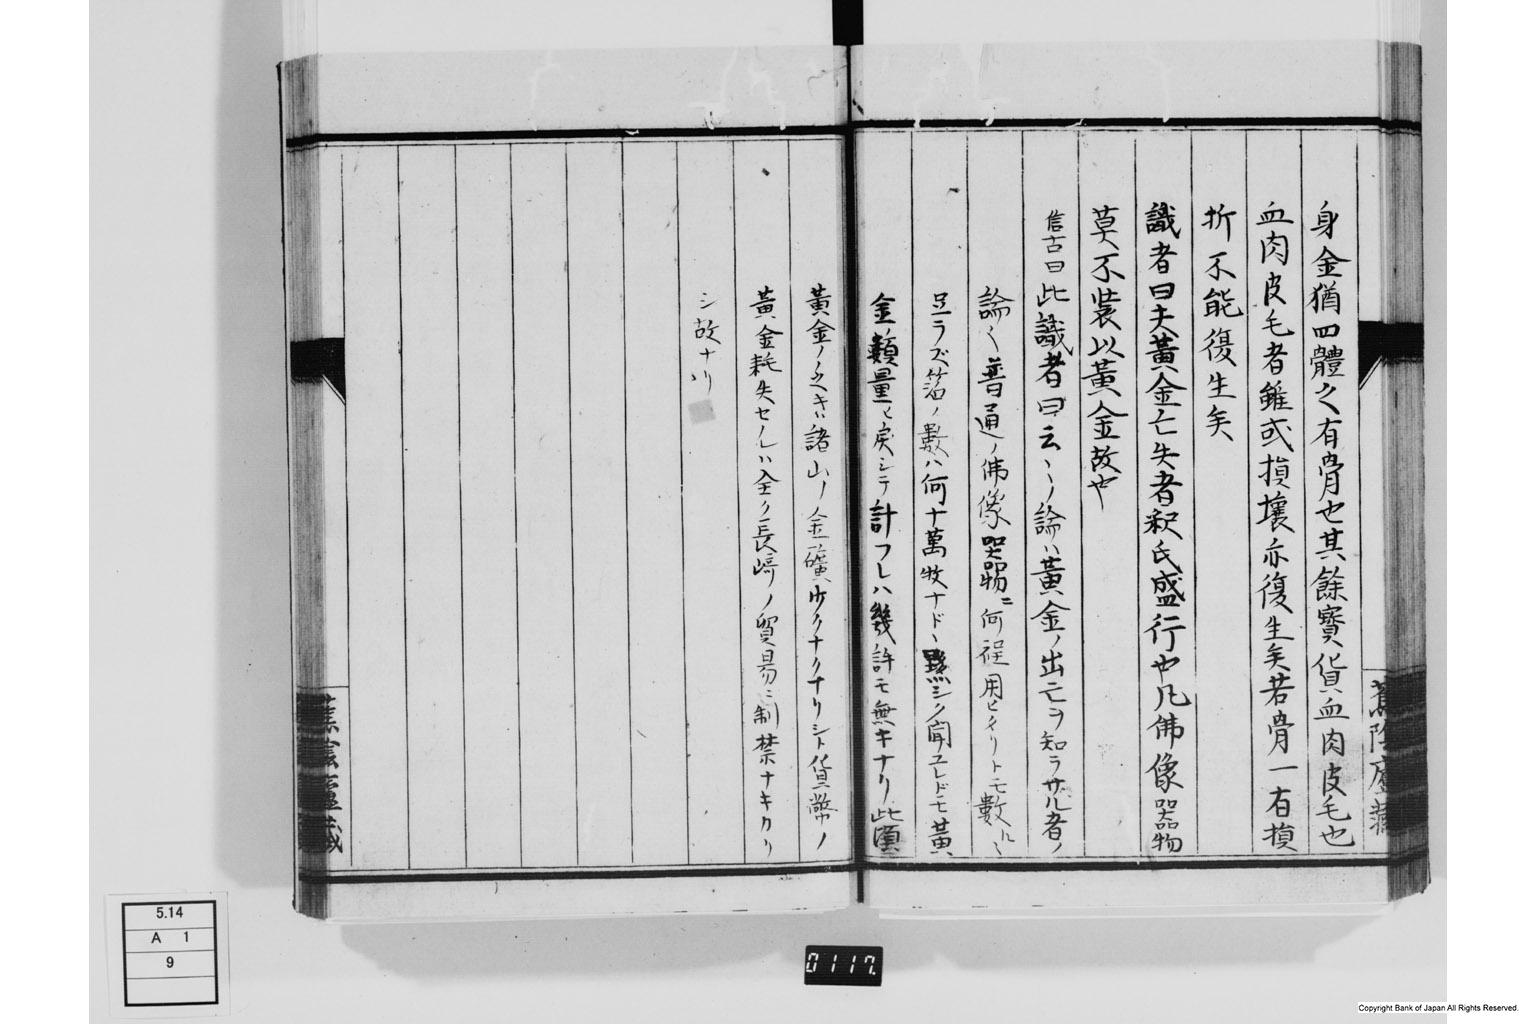 身金猶四體之有骨也其餘寳貨血肉皮毛也
血肉皮毛者雖或損壊亦復生矣若骨一有損
折不能復生矣
識者曰夫黃金亡失者釈氏盛行也凡佛像器物
莫不裝以黃金故也
信古曰此識者曰云ヽノ論ハ黃金ノ出亡ヲ知ラザル者ノ
論〻普通ノ佛像器物ニ何程用ヒタリトモ數ルニ
足ラズ箔ノ數ハ何十萬牧ナドヽ夥シク聞ユレドモ黃
金ノ類量ヒ戾シテ計フレハ幾許モ無キナリ此頃
黃金ノ乏キハ諸山ノ金礦少クナクナリシト貨幣ノ
黃金耗失セルハ全ク長崎ノ貿易ニ制禁ナキカリ
シ故ナリ
蕉陰廬蔵
蕉陰廬蔵
5.14
A 1
9
0117.
Copyright Bank of Japan All Rights Reserved.